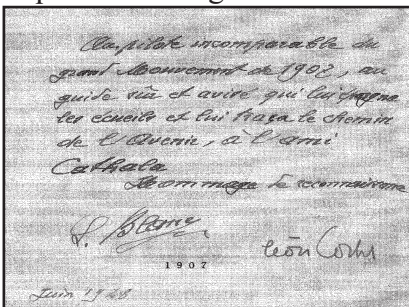 Au pilote incomparable du
grand Mouvement de 1907, au
guide sûr et avisé qui lui épargna
les écueils et lui traça le chemin
de l'Avenir, à l'ami
Cathala
Hommage de reconnaissance
L. Blanc
1907
Léon
Juin 1928